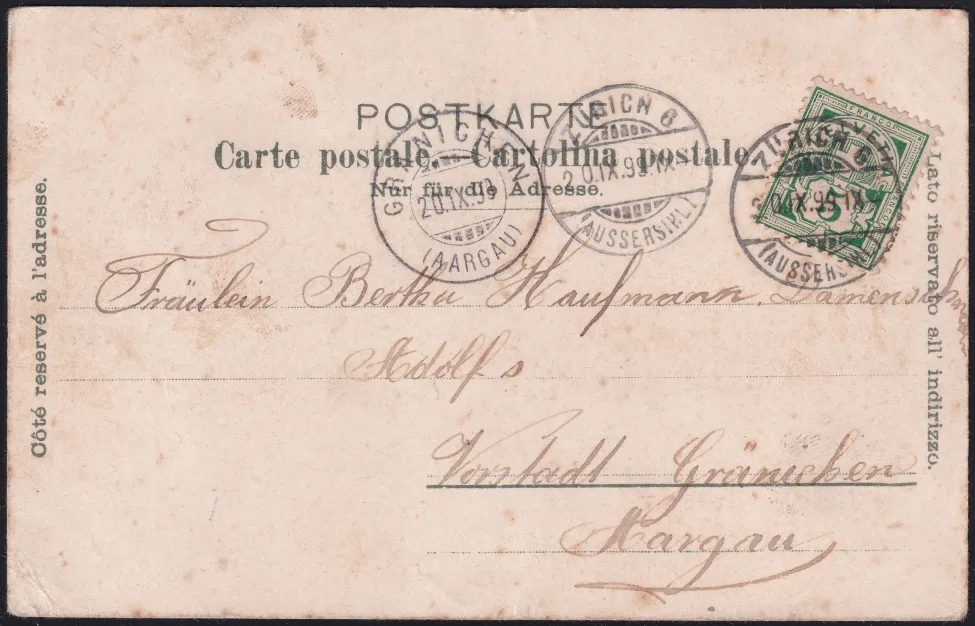 POSTKARTE
Carte postale. Cartolina postale
Nur für die Adresse.
GRÄNICHEN
20.IX.99
(AARGAU)
ZÜRICH 6
20.IX.99.IX
(AUSSERSIHL)
FRANCO
HELVETIA
5
ZÜRICH 6
20.IX.99.IX
(AUSSERSIHL)
Côté reservé à l'adresse.
Lato riservato all' indirizzo.
Fräulein Bertha Kaufmann, Damenschneid
Adolfs
Vorstadt Gränichen
Aargau